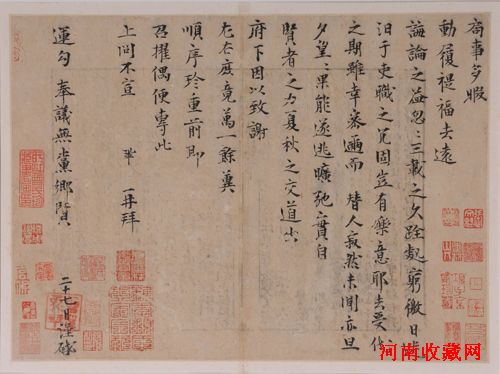 局事多暇
動履禔福去遠
誨論之益忽〻三載之久跧處窮徼日迷
汩于吏職之冗固豈有樂意耶去受代
之期雖幸密邇而替人寂然未聞亦旦
夕望〻果能遂逃曠弛實自
賢者之力夏秋之交道出
府下因以致謝
左右庶竟萬一餘冀
順序珍重前即
召擢偶便專此
上問不宣 鞏 再拜
運勾 奉議無黨鄉賢
二十七日謹啟
河南收藏网